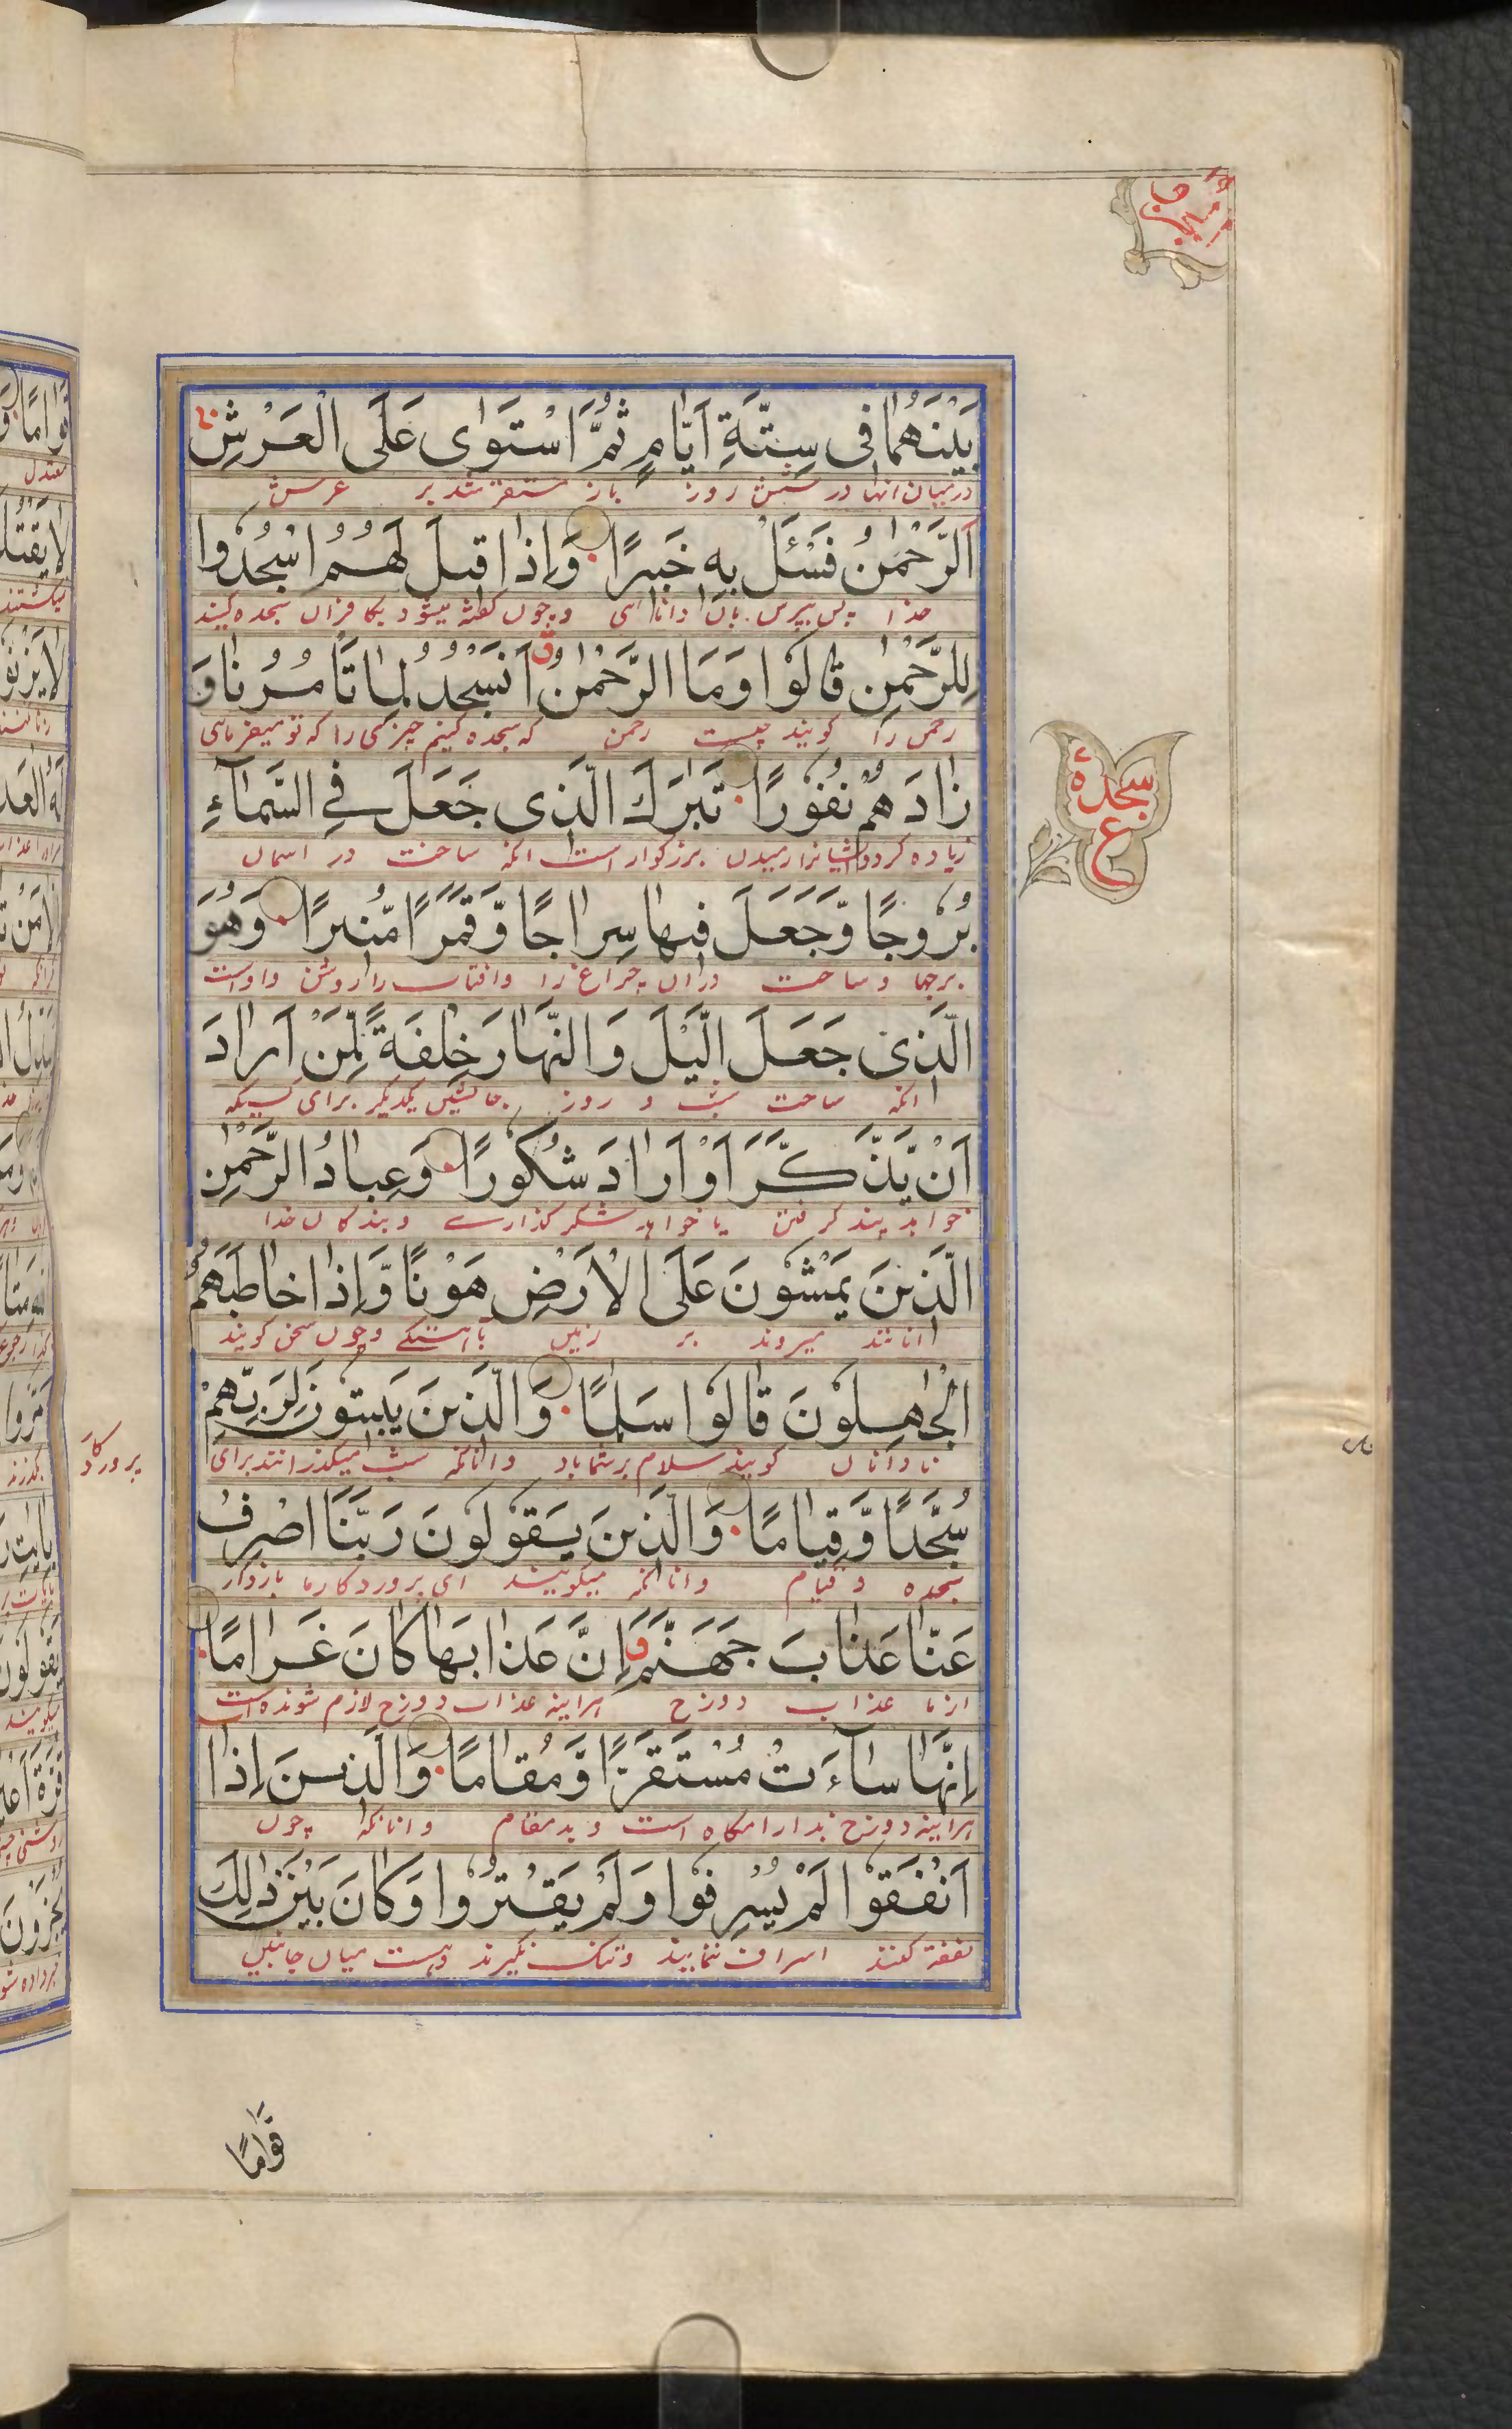 بَيْنَهُمَا فِي سِتَّةِ اَيَّامٍ ثُمَّ اسْتَوٰى عَلَى الْعَرْشِ
درمیان انها در شش روز باز مستقر شد بر عرش
اَلرَّحْمٰنُ فَسْئَلْ بِهٖ خَبِيْرًا وَاِذَا قِيْلَ لَهُمُ اسْجُدُوا
خدا پس بپرس بان دانا ای و چون گفته میشود بکافران سجده کنید
لِلرَّحْمٰنِ قَالُوْا وَمَا الرَّحْمٰنُ اَنَسْجُدُ لِمَا تَأْمُرُنَا وَ
رحمن را گویند چیست رحمن که سجده کنیم چیزی را که تو میفرمائی
زَادَهُمْ نُفُوْرًا تَبٰرَكَ الَّذِى جَعَلَ فِي السَّمَآءِ
زیاده کرد ایشانرا رمیدن بزرگوار است انکه ساخت در اسمان
بُرُوجًا وَّجَعَلَ فِيهَا سِرَاجًا وَّقَمَرًا مُّنِيرًا وَهُوَ
برجها و ساخت دران چراغ را وافتاب را روشن واوست
الَّذِى جَعَلَ الَّيْلَ وَالنَّهَارَ خِلْفَةً لِّمَنْ اَرَادَ
انکه ساخت شب و روز جانشین یکدیگر برای کسیکه
اَنْ يَّذَّكَّرَ اَوْ اَرَادَ شُكُورًا وَعِبَادُ الرَّحْمٰنِ
خواهد پند گرفتن یا خواهد شکر گذاری و بندگان خدا
الَّذِيْنَ يَمْشُونَ عَلَى الْاَرْضِ هَوْنًا وَّاِذَا خَاطَبَهُمُ
انانند میروند بر زمین باهستگی و چون سخن کویند
الْجٰهِلُوْنَ قَالُوْا سَلٰمًا وَالَّذِيْنَ يَبِيْتُوْنَ لِرَبِّهِمْ
نادانان گویند سلام بر شما باد و انانکه شب میگذرانند برای
پروردکار
سُجَّدًا وَّقِيَامًا وَالَّذِيْنَ يَقُوْلُوْنَ رَبَّنَا اصْرِفْ
سجده و قیام وانانکه میگویند ای پروردکار ما بازدار
عَنَّا عَذَابَ جَهَنَّمَ اِنَّ عَذَابَهَا كَانَ غَرَامًا
از ما عذاب دوزخ هراینه عذاب دوزخ لازم شونده است
اِنَّهَا سَآءَتْ مُسْتَقَرًّا وَّمُقَامًا وَالَّذِيْنَ اِذَا
هراینه دوزخ بد ارامگاه است و بد مقام وانانکه چون
اَنْفَقُوْا لَمْ يُسْرِفُوْا وَلَمْ يَقْتُرُوْا وَكَانَ بَيْنَ ذٰلِكَ
نفقه کنند اسراف ننمایند و تنگ نگیرند وهست میان جانبین
سجدة
ع
قَوَامًا